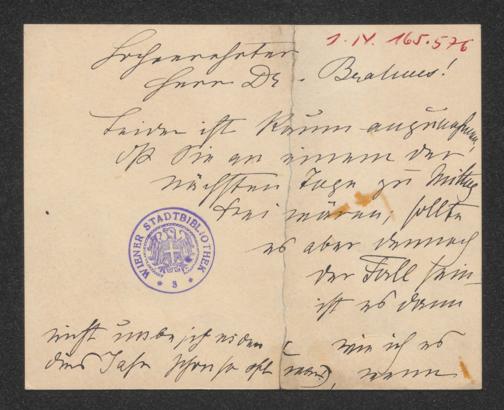 1. N. 165.576
Hochverehrter
Herr Dr. Brahms!
Leider ist kaum anzunehmen,
daß Sie an einem der
nächsten Tage zu Mittag
frei wären, sollte
es aber dennoch
der Fall sein
ist es dann
nicht
wie ich es
dies Jahr schon so oft war), wenn
WIENER STADTBIBLIOTHEK